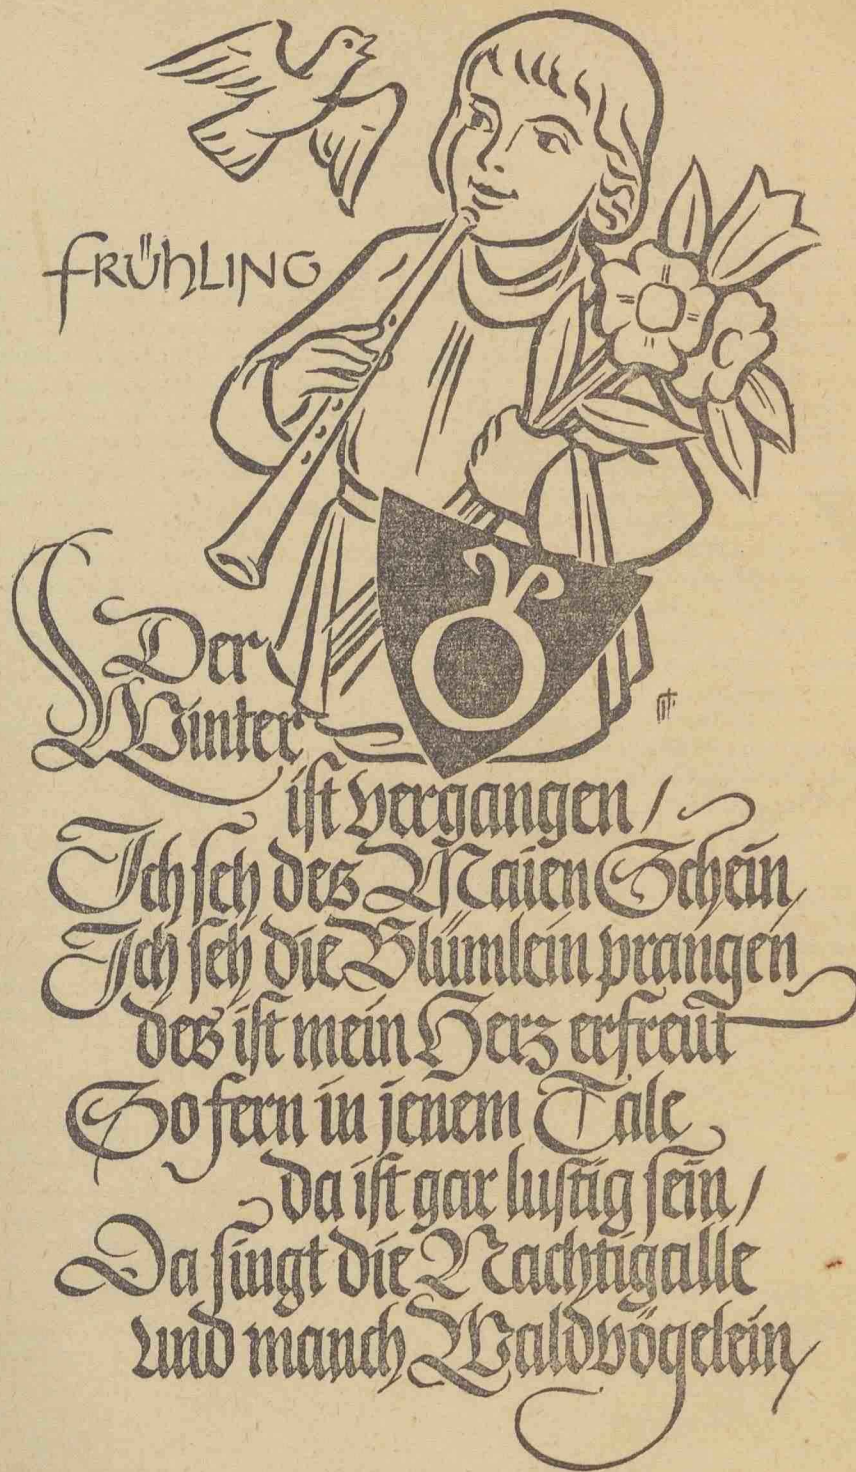 FRÜHLING
Der
Winter
ist vergangen/
Ich seh des Maien Schein,
Ich seh die Blümlein prangen
des ist mein Herz erfreut
So fern in jenem Tale
da ist gar lustig sein/
Da singt die Nachtigalle
und manch Waldvögelein/